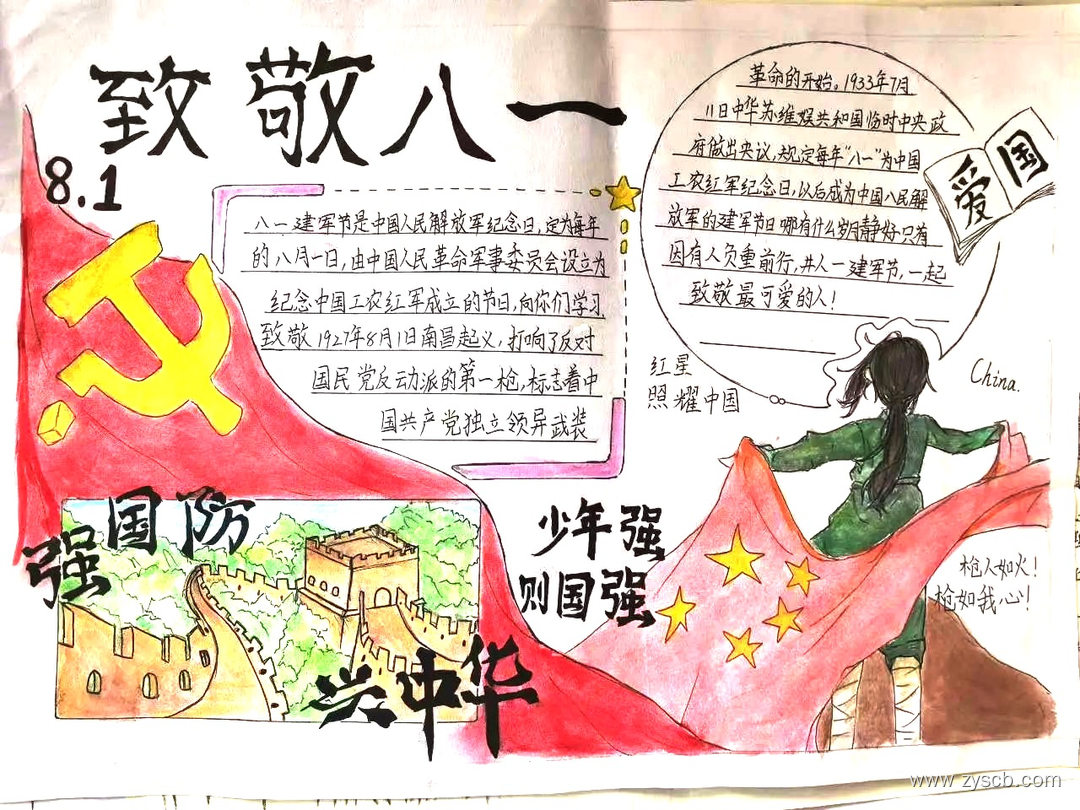 致敬八一
8.1
八一建军节是中国人民解放军纪念日,定为每年
的八月一日,由中国人民革命军事委员会设立为
纪念中国工农红军成立的节日,向你们学习
致敬1927年8月1日南昌起义,打响了反对
国民党反动派的第一枪,标志着中
国共产党独立领异武装
革命的开始。1933年7月
11日中华苏维娱共和国临时中央政
府做出央议,规定每年"八一"为中国
工农红军纪念日,以后成为中国人民解
放军的建军节日哪有什么岁月静好只有
因有人负重前行,井人一建军节,一起
致敬最可爱的人!
爱国
红星
照耀中国
China.
强国防
兴中华
少年强
则国强
枪人如火!
枪如我心!
www.zyscb.com